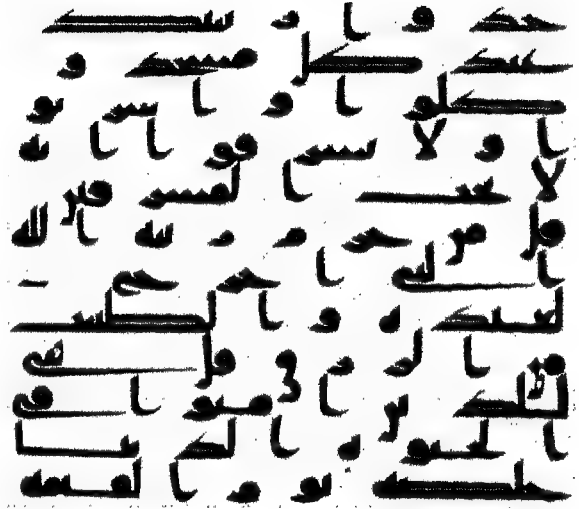 خذوا زينتكم
عند كل مسجد و
كلوا واشربو
ا ولا تسرفوا انه
لا يحب المسرفين
قل من حرم زينه الله
التى اخرج
لعباده والطيبت
من الرزق قل هى
للذين امنوا فى
الحيوه الدنيا
خالصه يوم القيمه